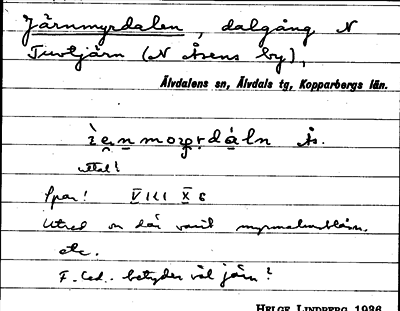 Järnmyrdalen, dalgång N
Tuvtjärn (N Åsens by),
Älvdalens sn, Älvdals tg, Kopparbergs län.
ìe̜nmorgrdáln Ås.
uttal!
Spar! V 111 X 6
Utred om där varit myrmalmsblästn.
etc.
F. led. betyder väl järn?
HELGE LINDBERG 1936